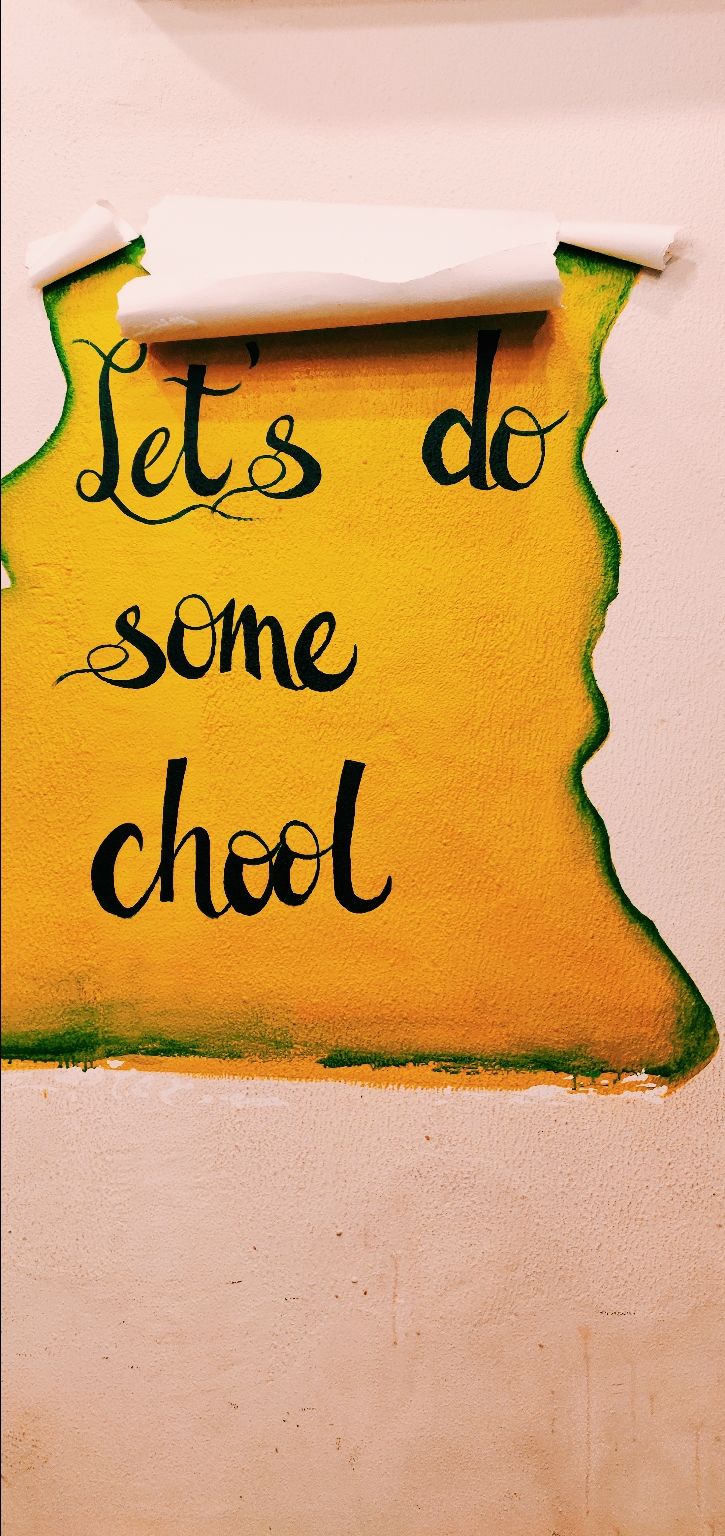 Let's do
some
chool